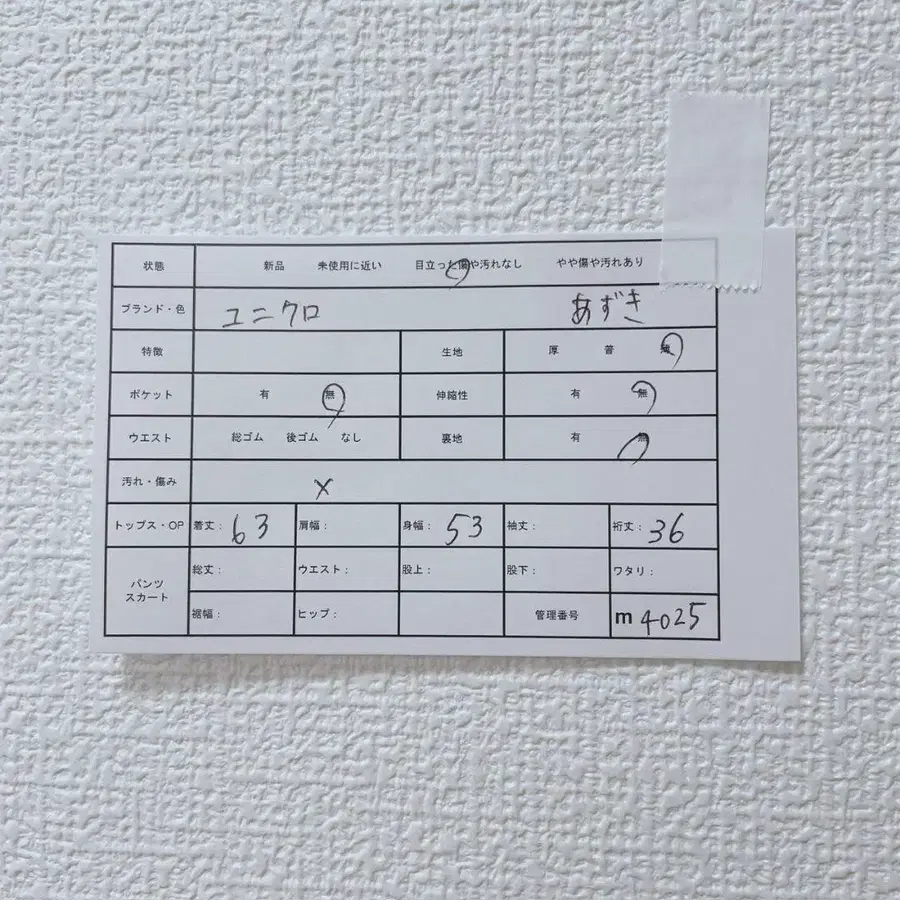 状態 新品 未使用に近い 目立った傷や汚れなし やや傷や汚れあり
ブランド・色 ユニクロ あずき
特徴 生地 厚 普 薄
ポケット 有 無 伸縮性 有 無
ウエスト 総ゴム 後ゴム なし 裏地 有 無
汚れ・傷み ×
トップス・OP 着丈: 63 肩幅: 身幅: 53 袖丈: 裄丈: 36
パンツ
スカート
総丈: ウエスト: 股上: 股下: ワタリ:
裾幅: ヒップ: 管理番号 m 4025